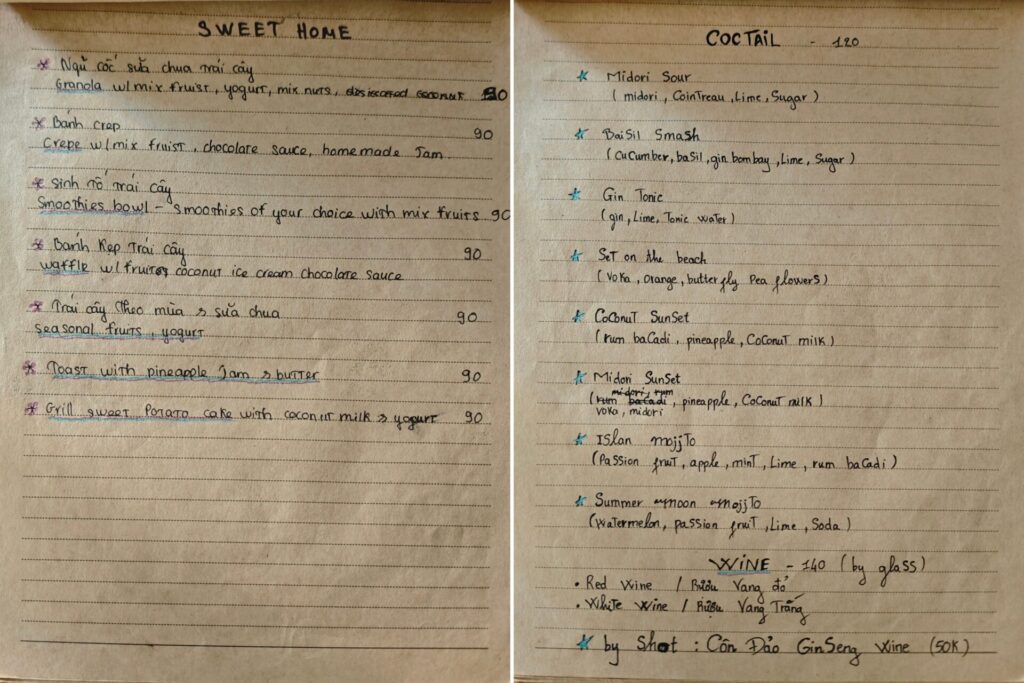 SWEET HOME
* Ngũ cốc sữa chua trái cây
Granola w/mix fruist, yogurt, mix nuts, desiccated coconut
* Bánh crep 90
Crepe w/mix fruist, chocolate sauce, homemade Jam.
* Sinh Tố Trái cây
Smoothies bowl - smoothies of your choice with mix fruits 90
* Bánh Kẹp Trái cây 90
waffle w/fruits coconut ice cream chocolate sauce
* Trái cây Theo mùa & sữa chua 90
seasonal fruits, yogurt
* Toast with pineapple Jam & butter 90
* Grill sweet Potato cake with coconut milk & yogurt 90
COCTAIL - 120
* Midori Sour
(midori, Cointreau, Lime, Sugar)
* BaiSil Smash
(Cucumber, basil, gin bombay, Lime, Sugar)
* Gin Tonic
(gin, Lime, Tonic water)
* Set on the beach
(Voka, orange, butterfly Pea flowers)
* Coconut Sunset
(rum bacadi, pineapple, Coconut milk)
* Midori Sunset
midori, rum
(rum bacadi, pineapple, Coconut milk)
voka, midori
* Islan mojjto
(Passion fruit, apple, mint, Lime, rum bacadi)
* Summer moon mojjto
(Watermelon, passion fruit, Lime, Soda)
WINE - 140 (by glass)
• Red Wine / Rượu Vang đỏ
• White Wine / Rượu Vang Trắng
* by Shot : Côn Đảo GinSeng Wine (50K)